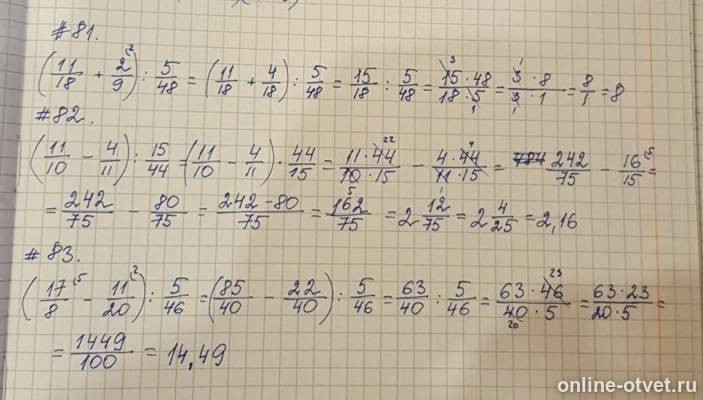 #81.
(11/18 + 2/9^(2) ) : 5/48 = (11/18 + 4/18) : 5/48 = 15/18 : 5/48 = 15·48/18·5 = 3·8/3·1 = 8/1 = 8
#82.
(11/10 - 4/11) : 15/44 = (11/10 - 4/11) · 44/15 = 11·44/10·15 - 4·44/11·15 = 484 242/75 - 16/15^(5) =
= 242/75 - 80/75 = 242-80/75 = 162/75 = 2 12/75 = 2 4/25 = 2,16
#83.
(17/8^(5) - 11/20^(2) ) : 5/46 = (85/40 - 22/40) : 5/46 = 63/40 : 5/46 = 63·46/40·5 = 63·23/20·5 =
= 1449/100 = 14,49
online-otvet.ru